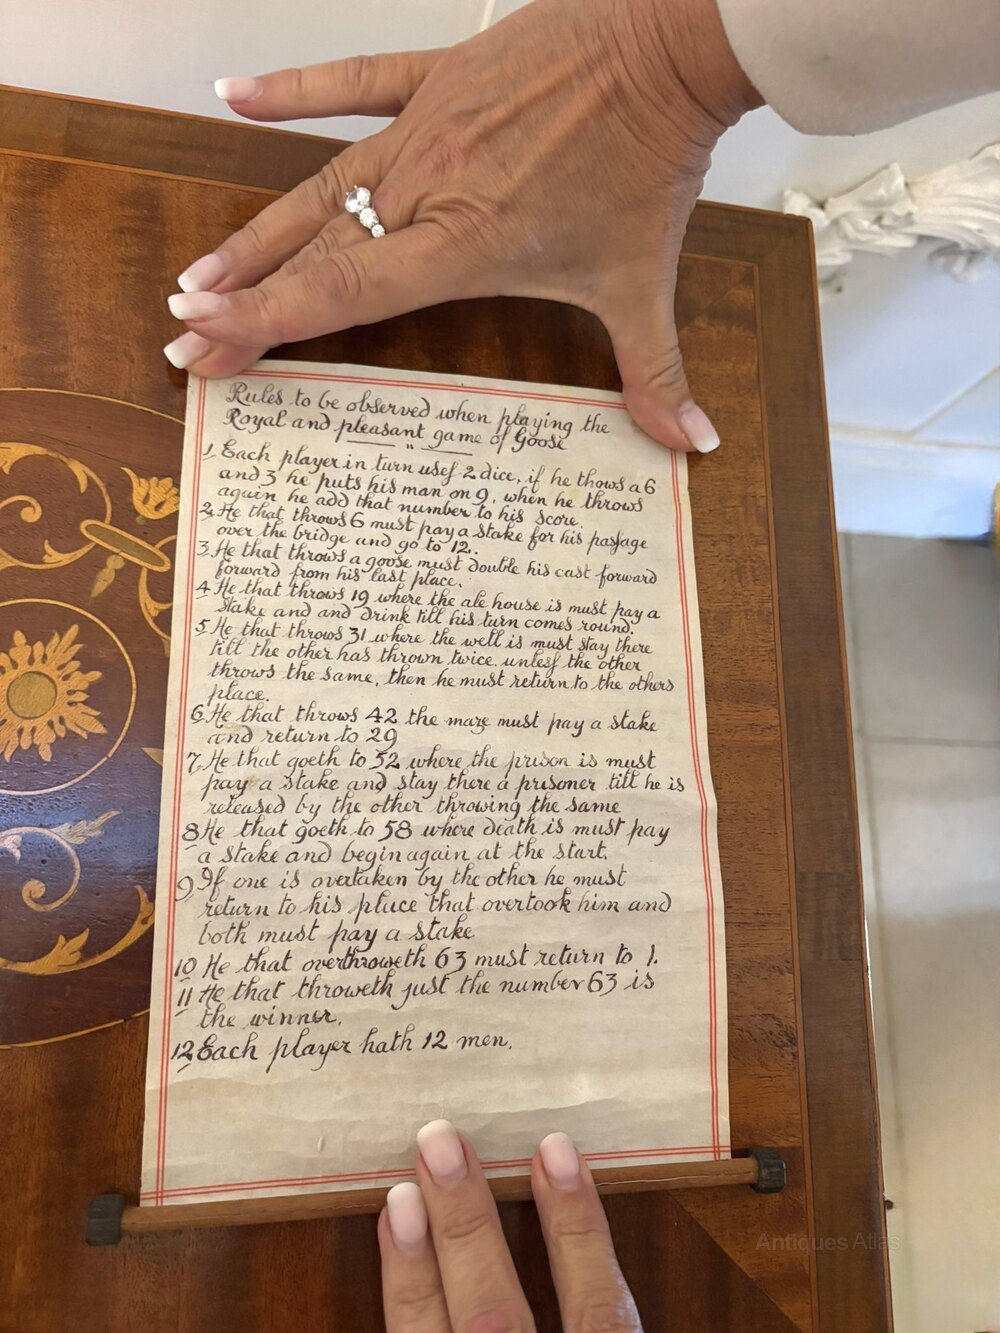 Rules to be observed when playing the
Royal and pleasant game of Goose
"
1 Each player in turn usef 2 dice, if he thows a 6
and 3 he puts his man on 9, when he throws
again he add that number to his score.
2 He that throws 6 must pay a stake for his pafsage
over the bridge and go to 12.
3. He that throws a goose must double his cast forward
forward from his last place.
4 He that throws 19 where the ale house is must pay a
stake and and drink till his turn comes round.
5 He that throws 31 where the well is must stay there
till the other has thrown twice, unlesf the other
throws the same, then he must return to the others
place.
6 He that throws 42 the maze must pay a stake
and return to 29
7. He that goeth to 52 where the prison is must
pay a stake and stay there a prisoner till he is
released by the other throwing the same
8 He that goeth to 58 where death is must pay
a stake and begin again at the start.
9 If one is overtaken by the other he must
return to his place that overtook him and
both must pay a stake
10 He that overthroweth 63 must return to 1.
11 He that throweth just the number 63 is
the winner.
12 Each player hath 12 men.
Antiques Atlas